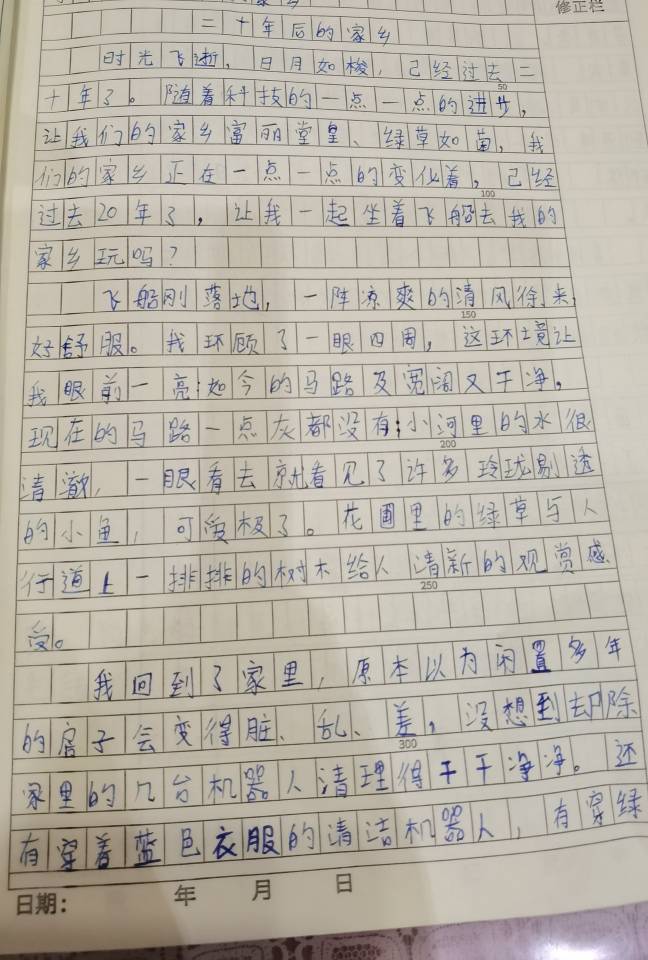 修正栏
二十年后的家乡
时光飞逝，日月如梭，已经过去二
50
十年了。随着科技的一点一点的进步，
让我们的家乡富丽堂皇、绿草如茵，我
们的家乡正在一点一点的变化着，已经
100
过去20年了，让我一起坐着飞船去我的
家乡玩吗？
飞船刚落地，一阵凉爽的清风徐来，
150
好舒服。我环顾了一眼四周，这环境让
我眼前一亮：如今的马路及宽阔又干净，
现在的马路一点灰都没有；小河里的水很
200
清澈，一眼看去就看见了许多玲珑剔透
的小鱼，可爱极了。花圃里的绿草与人
行道上一排排的树木给人清新的观赏感
250
受。
我回到了家里，原本以为闲置多年
的房子会变得脏、乱、差，没想到却除
300
家里的几台机器人清理得干干净净。还
有穿着蓝色衣服的清洁机器人，有穿绿
日期： 年 月 日